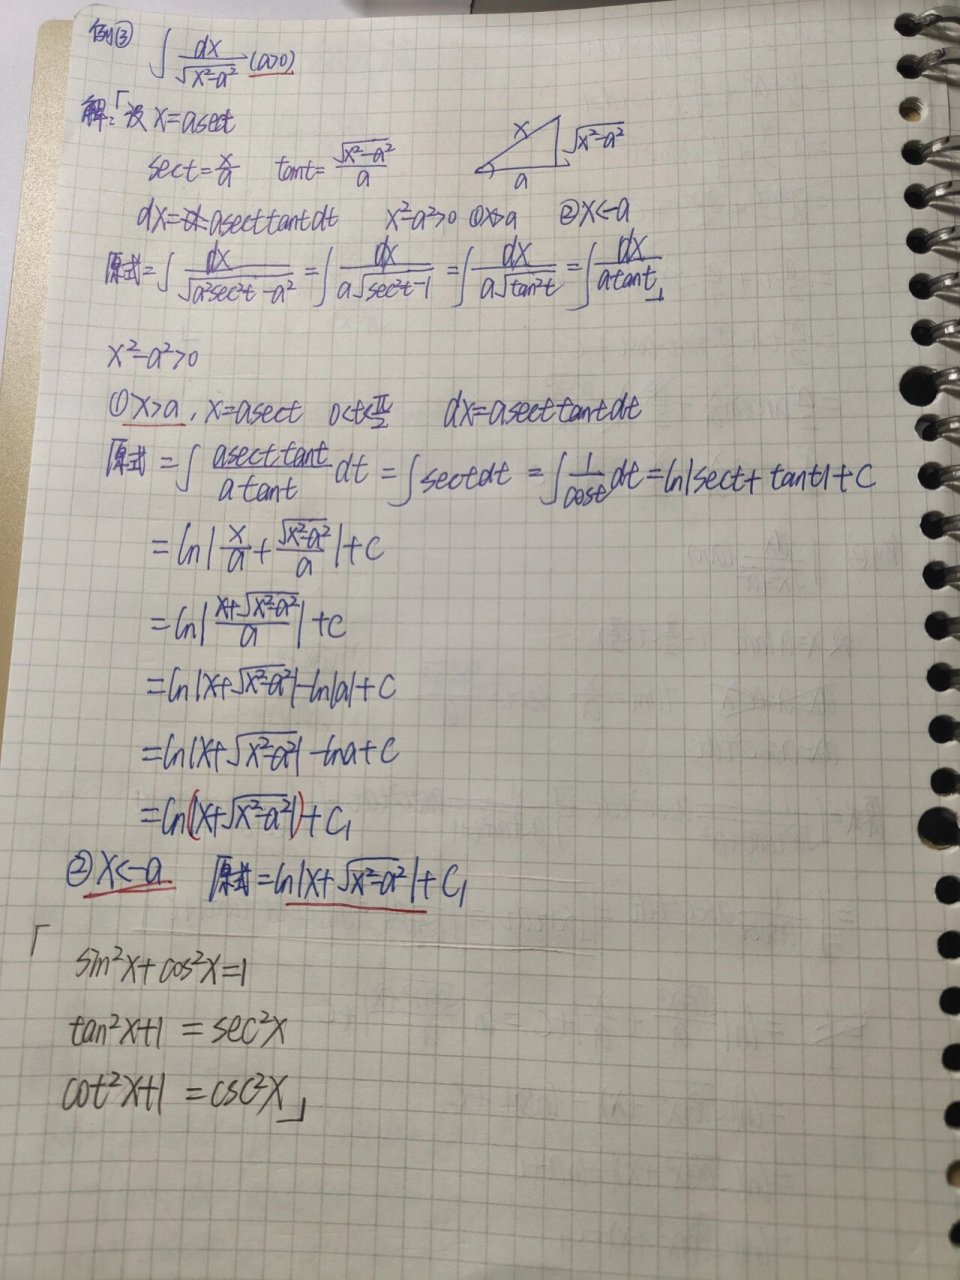 例③ ∫ dx/√(x²-a²) (a>0)
解:「设 x=asect
x √(x²-a²) a
sect=x/a tant=√(x²-a²)/a
dx=asect tant dt x²-a²>0 ①x>a ②x<-a
原式=∫ dx/√(a²sec²t-a²) =∫ dx/(a√(sec²t-1)) =∫ dx/(a√(tan²t)) =∫ dx/(atant)」
x²-a²>0
①x>a, x=asect 0<t<π/2 dx=asect tant dt
原式=∫ (asect tant)/(atant) dt =∫sect dt =∫ 1/cost dt=ln|sect+tant|+C
=ln|x/a+√(x²-a²)/a|+C
=ln|(x+√(x²-a²))/a|+C
=ln|x+√(x²-a²)|-ln|a|+C
=ln|x+√(x²-a²)|-lna+C
=ln(|x+√(x²-a²)|)+C₁
②x<-a 原式=ln|x+√(x²-a²)|+C₁
「
sin²x+cos²x=1
tan²x+1=sec²x
cot²x+1=csc²x」